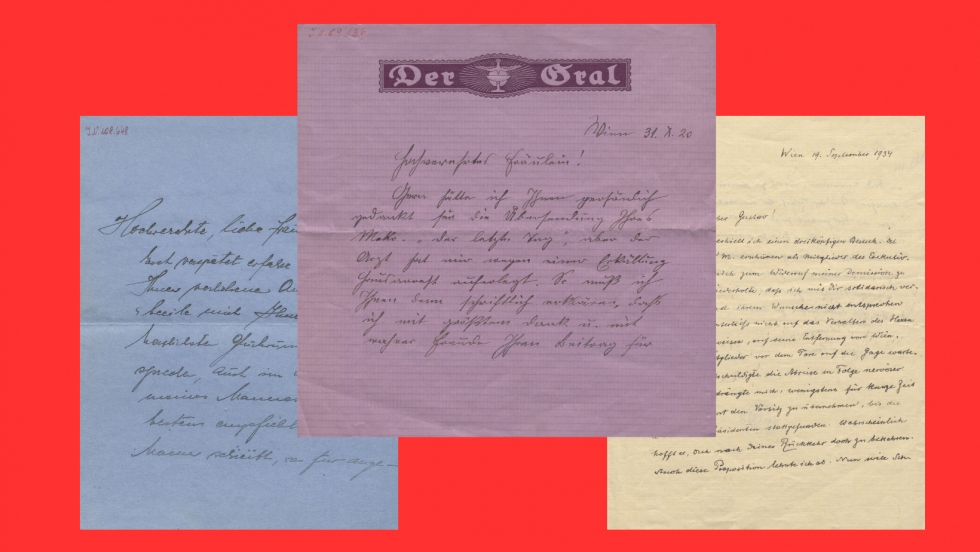 Hochverehrte, liebe
hart verspätet erfahre
Ihnen verliehene
beeile mich
herzlichste
spreche, auch im
meines Mannes
bestens empfiehlt
Mann schreibt, so für
Der Gral
Wien 31. X. 20
Hochverehrtes Fräulein!
Gern hätte ich Ihnen persönlich
gedankt für die Übersendung Ihres
Mskr. „Der letzte Tag“, aber der
Arzt hat mir wegen einer Erkältung
Hausarrest auferlegt. So muß ich
Ihnen denn schriftlich erklären, daß
ich mit größtem Dank u. mit
wahrer Freude Ihren Beitrag für
Wien 19. September 1934
Gustav!
ich einen dreiköpfigen Besuch.
M. erschienen als Mitglieder des
zum Widerruf meiner Demission zu
, dass ich mich Dir solidarisch
Wunsche nicht entsprechen
nicht auf das Verhalten des Herrn
, auf seine Entfernung von Wien,
vor dem Tore auf die
die Abreise in Folge nervöser
mich, wenigstens für kurze Zeit
den Vorsitz zu übernehmen, bis die
stattgefunden. Wahrscheinlich
hofft er, Dich nach Deiner Rückkehr doch zu bekehren.
Auch diese Proposition lehnte ich ab. Nun viele